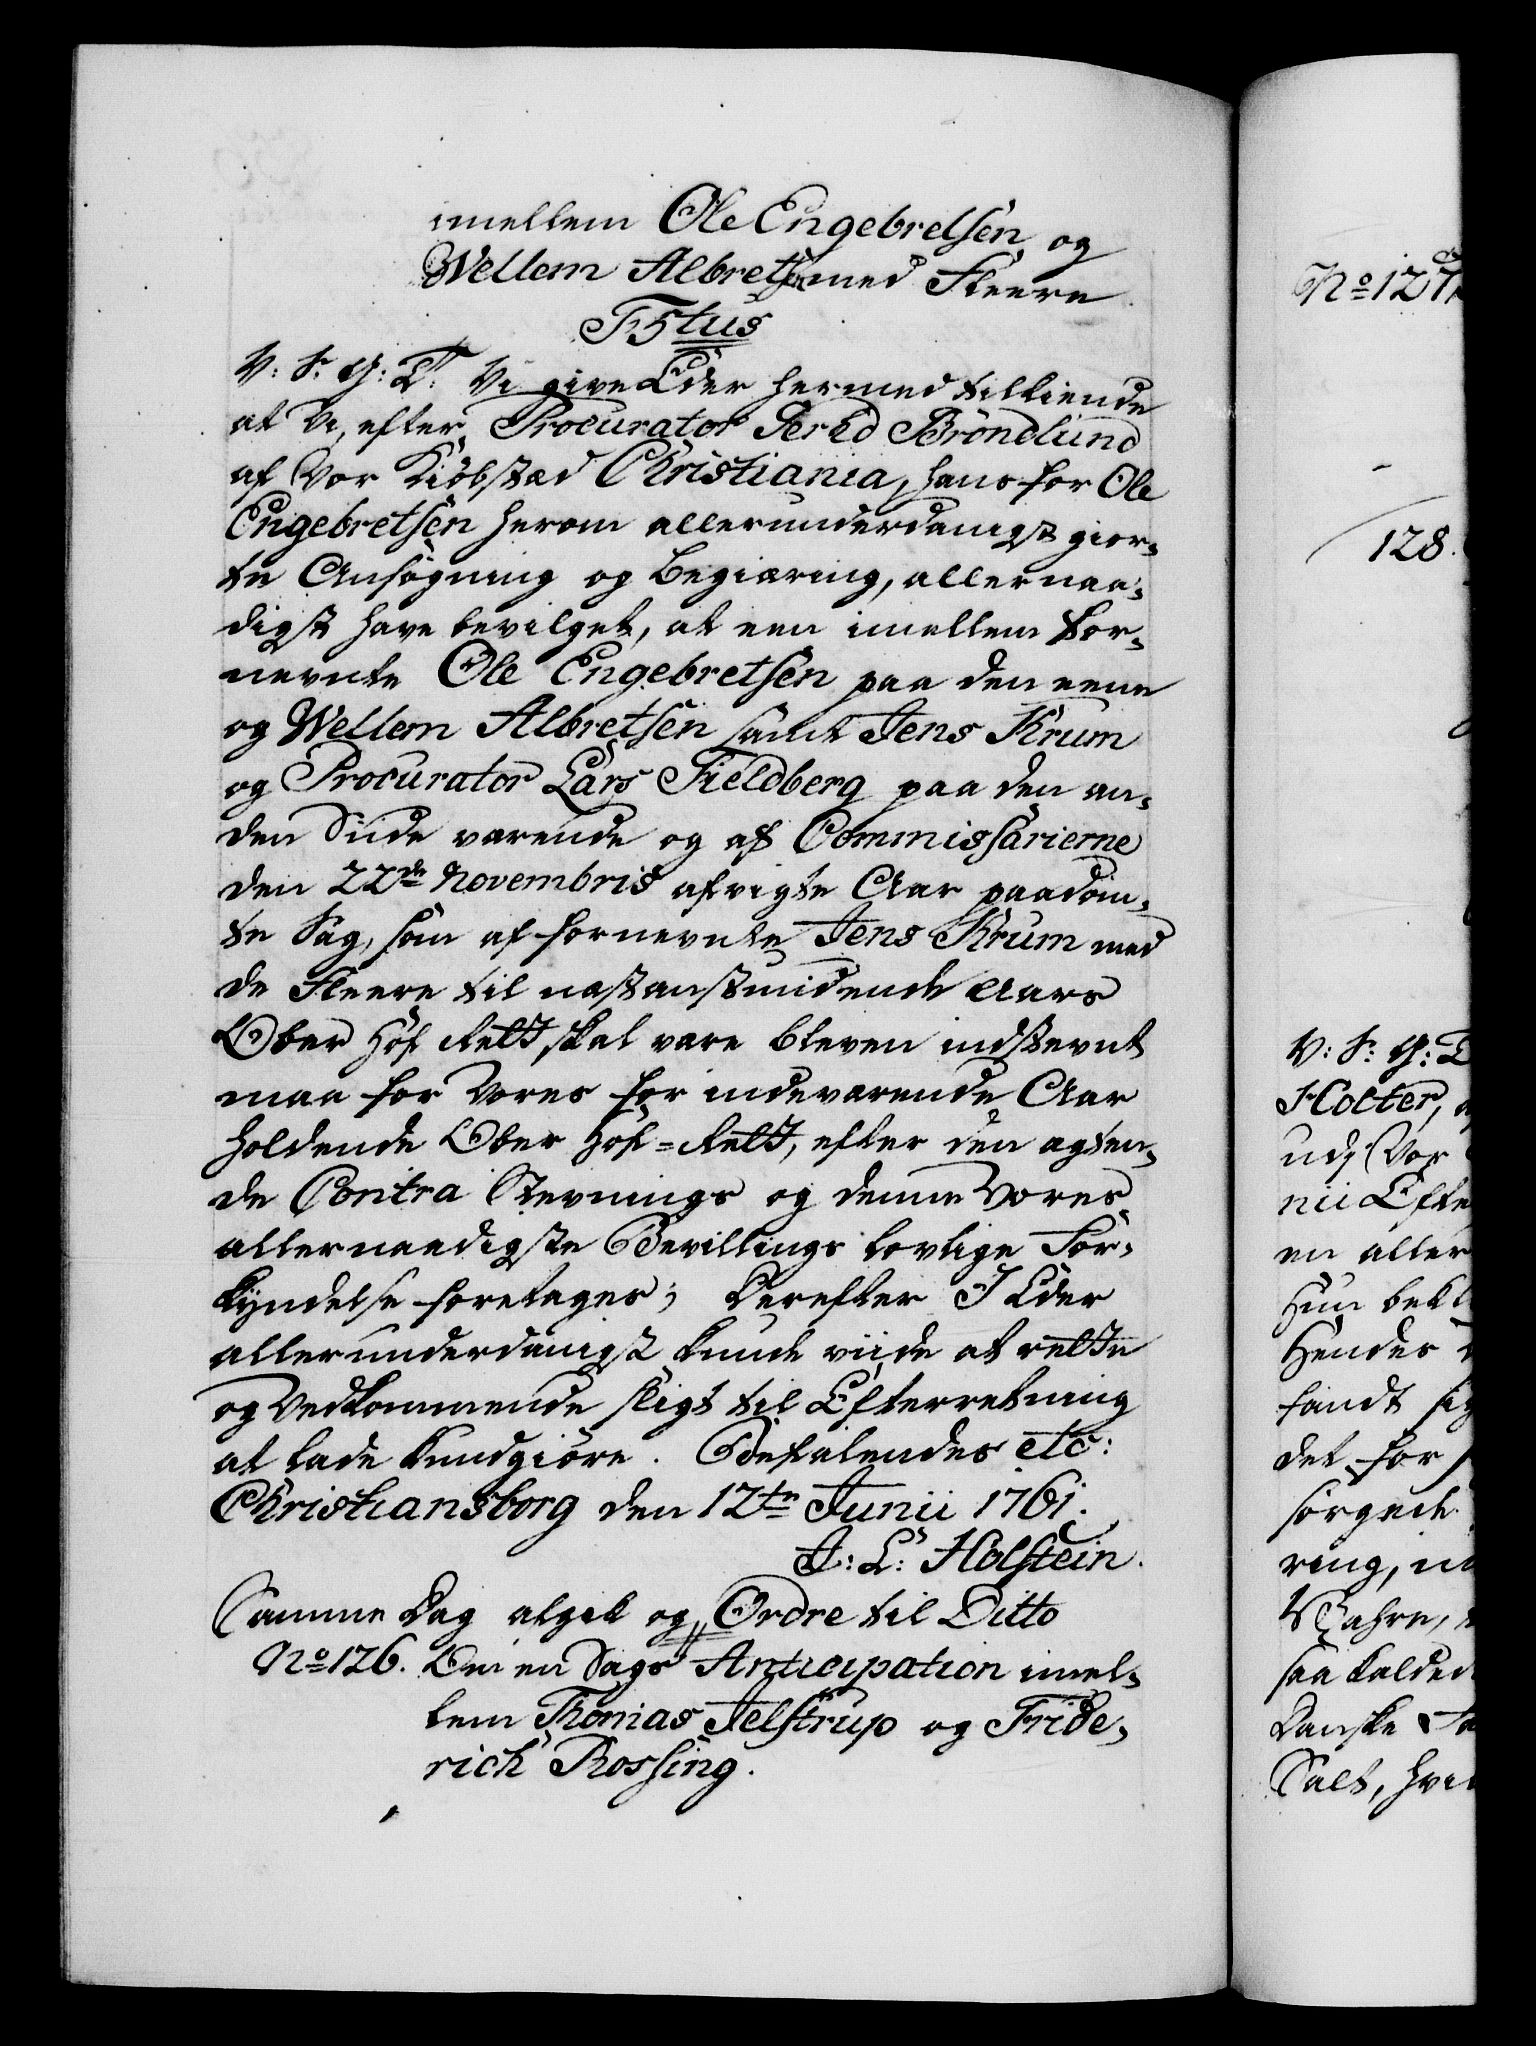 imellem Ole Engebretsen og
Wellem Albretsen med Fleere
F5tus
V: S: G: T: Vi give Eder hermed tilkiende
at Vi, efter Procurator Pered Bröndlund
af Vor Kiöbstæd Christiania, hans for Ole
Engebretsen herom allerunderdanigst gior-
te Ansögning og Begiæring, allernaa-
digst have bevilget, at een imellem for-
nevnte Ole Engebretsen paa den eene
og Wellem Albretsen samt Jens Krum
og Procurator Lars Fieldberg paa den an-
den Siide værende og af Commissarierne
den 22de Novembris afvigte Aar paadöm-
te Sag, som af fornevnte Jens Krum med
de Fleere til næstanstundende Aars
Ober Hof Rett skal være bleven indstevnt
maa for Vores for indeværende Aar
holdende Ober Hof-Rett, efter den agten-
de Contra Stevnings og denne Vores
allernaadigste Bevillings lovlige For-
kyndelse foretages; Derefter I Eder
allerunderdanigst kunde viide at rette
og Vedkommende sligt til Efterretning
at lade kundgiöre. Befalendes etc:
Christiansborg den 12te Junii 1761.
J: L: Holstein.
Samme Dag afgik og Ordre til Ditto
No 126. Om en Sags Anticipation imel-
lem Thomas Jelstrup og Fride-
rich Rossing.
No 127
128.
V: S: G: T
Holter,
udj Vor
nii Efte
en aller
Hun bekl
Hendes
fandt sig
det for
sörgede
ring, in
Wahre,
saa kalded
Danske
Salt, hvi